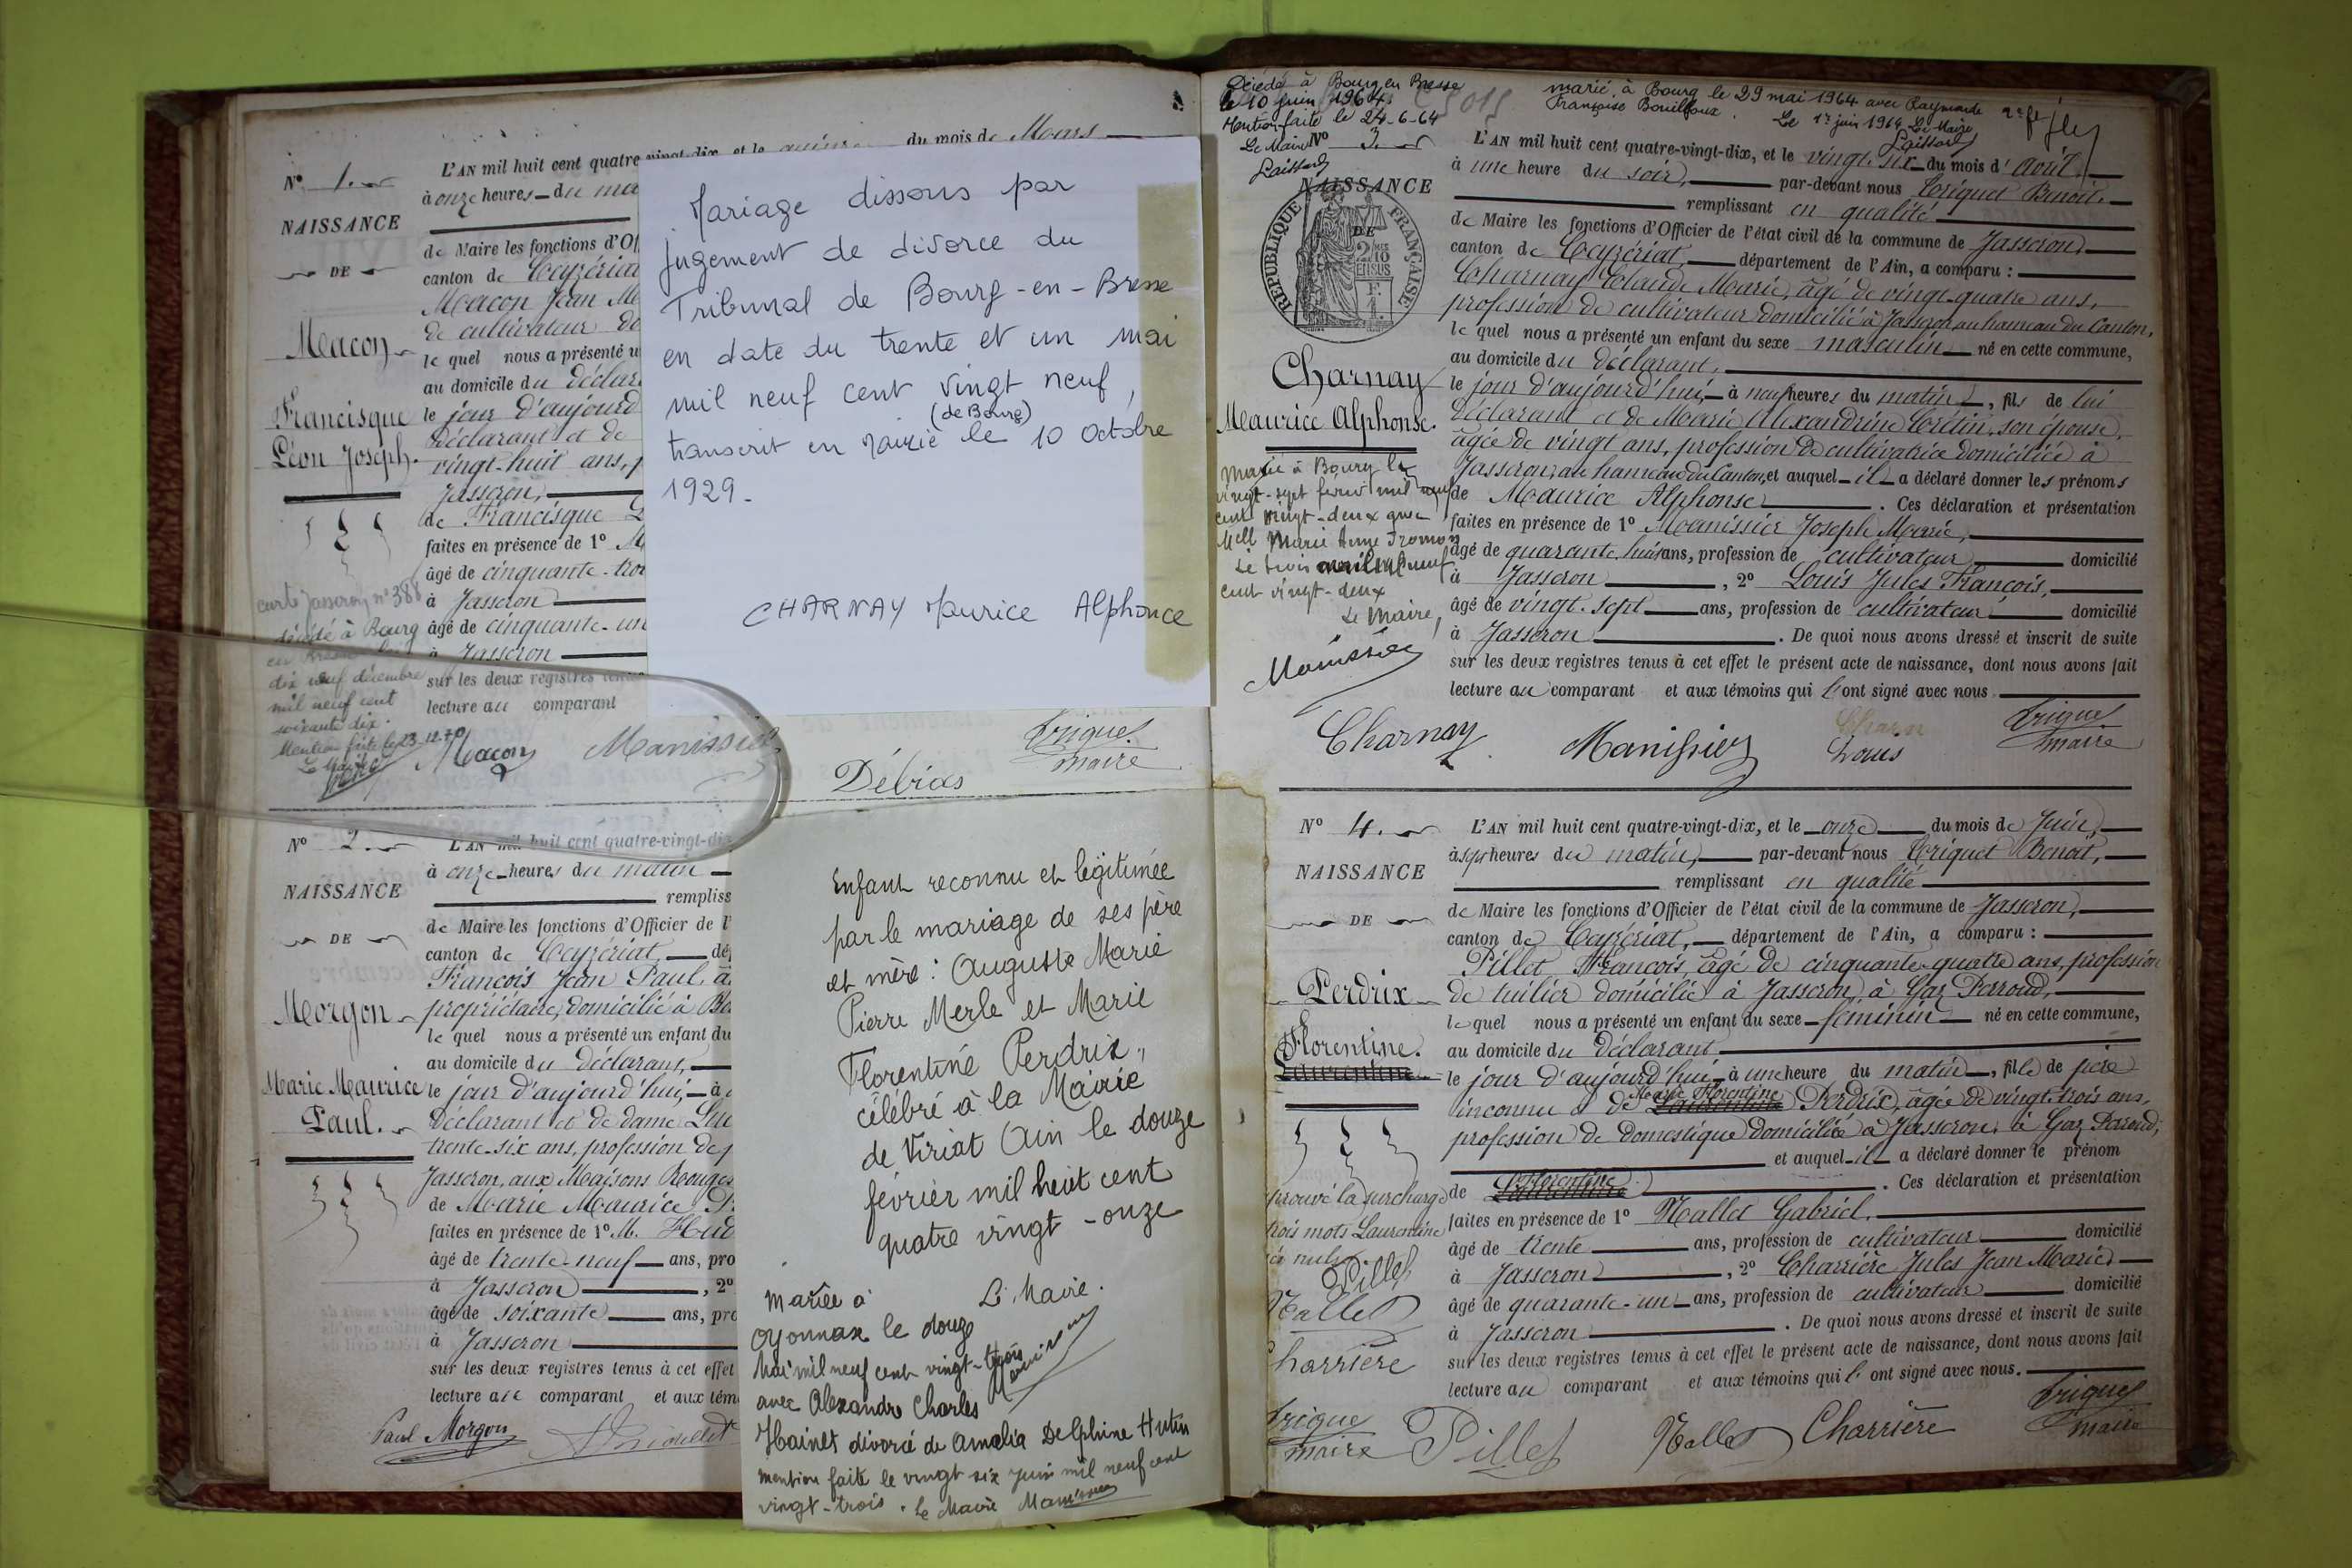 N° 1.
NAISSANCE
DE
Macon
Francisque
Léon Joseph.
L'AN mil huit cent quatre-vingt-dix, et le quinze du mois de Mars
à onze heures du ma
de Maire les fonctions d'Of
canton de Ceyzériat
Macon Jean Ma
de cultivateur do
le quel nous a présenté u
au domicile du déclar
le jour d'aujourd
déclarant et de
vingt-huit ans, p
Jasseron,
de Francisque L
faites en présence de 1° M
âgé de cinquante-troi
à Jasseron
âgé de cinquante-un
à Jasseron
sur les deux registres tenus
lecture au comparant
carte Jasseron n° 388
décédé à Bourg
en Bresse le
dix neuf décembre
mil neuf cent
soixante dix.
Mention faite le 23-12-70
Le Maire
Macon Manissier
Débias
Criquet
maire
Mariage dissous par
jugement de divorce du
Tribunal de Bourg-en-Bresse
en date du trente et un mai
mil neuf cent vingt neuf,
(de Bourg)
transcrit en Mairie le 10 Octobre
1929.
CHARNAY Maurice Alphonce
N° 2.
NAISSANCE
DE
Morgon
Marie Maurice
Paul.
L'AN mil huit cent quatre-vingt-dix
à onze heures du matin
rempliss
de Maire les fonctions d'Officier de l'
canton de Ceyzériat, dép
François Jean Paul, â
propriétaire, domicilié à Bo
le quel nous a présenté un enfant du
au domicile du déclarant,
le jour d'aujourd'hui, à
déclarant et de dame Lu
trente-six ans, profession de p
Jasseron, aux Maisons Rouges
de Marie Maurice P
faites en présence de 1° M. Hud
âgé de trente-neuf ans, pro
à Jasseron, 2°
âgé de soixante ans, pro
à Jasseron
sur les deux registres tenus à cet effet
lecture au comparant et aux tém
Paul Morgon
Enfant reconnu et légitimée
par le mariage de ses père
et mère : Auguste Marie
Pierre Merle et Marie
Florentine Perdrix,,
célébré à la Mairie
de Viriat (Ain le douze
février mil huit cent
quatre vingt-onze
Le Maire.
Manissier
Mariée à
Oyonnax le douze
Mai mil neuf cent vingt-trois
avec Alexandre Charles
Hainet divorcé de Amélia Delphine Hutin
mention faite le vingt six Juin mil neuf cent
vingt-trois. Le Maire Manissier
Décédé à Bourg en Bresse
le 10 juin 1964.
Mention faite le 24-6-64
Le Maire
Laissard
marié à Bourg le 29 mai 1964 avec Raymonde
Françoise Bouilloux.
Le 1er juin 1964 Le Maire
Laissard
N° 3.
NAISSANCE
DE
REPUBLIQUE FRANÇAISE
2/10 EN SUS
Charnay
Maurice Alphonse.
L'AN mil huit cent quatre-vingt-dix, et le vingt-six du mois d'Avril,
à une heure du soir, par-devant nous Criquet Benoit,
remplissant en qualité
de Maire les fonctions d'Officier de l'état civil de la commune de Jasseron,
canton de Ceyzériat, département de l'Ain, a comparu :
Charnay Claude Marie, âgé de vingt-quatre ans,
profession de cultivateur domicilié à Jasseron au hameau du Canton,
le quel nous a présenté un enfant du sexe masculin né en cette commune,
au domicile du déclarant,
le jour d'aujourd'hui, à neuf heures du matin, fils de lui
déclarant et de Marie Alexandrine Crétin, son épouse,
âgée de vingt ans, profession de cultivatrice domiciliée à
Jasseron, au hameau du Canton, et auquel il a déclaré donner les prénoms
de Maurice Alphonse. Ces déclaration et présentation
faites en présence de 1° Manissier Joseph Marie,
âgé de quarante-huit ans, profession de cultivateur domicilié
à Jasseron, 2° Louis Jules François,
âgé de vingt-sept ans, profession de cultivateur domicilié
à Jasseron. De quoi nous avons dressé et inscrit de suite
sur les deux registres tenus à cet effet le présent acte de naissance, dont nous avons fait
lecture au comparant et aux témoins qui l'ont signé avec nous.
Marié à Bourg le
vingt-sept février mil neuf
cent vingt-deux avec
Melle Marie Anne Tromon
Le trois avril mil neuf
cent vingt-deux
Le Maire,
Manissier
Charnay Manissier Louis Criquet
maire
N° 4.
NAISSANCE
DE
Perdrix
Florentine.
Laurentine
L'AN mil huit cent quatre-vingt-dix, et le onze du mois de Juin,
à sept heures du matin, par-devant nous Criquet Benoit,
remplissant en qualité
de Maire les fonctions d'Officier de l'état civil de la commune de Jasseron,
canton de Ceyzériat, département de l'Ain, a comparu :
Pillet François, âgé de cinquante-quatre ans, profession
de tuilier domicilié à Jasseron, à Gaz Perroud,
le quel nous a présenté un enfant du sexe féminin né en cette commune,
au domicile du déclarant
le jour d'aujourd'hui, à une heure du matin, fille de père
Marie Florentine
inconnu et de Laurentine Perdrix, âgée de vingt-trois ans,
profession de domestique domiciliée à Jasseron, à Gaz Perroud,
et auquel il a déclaré donner le prénom
Florentine
de Laurentine. Ces déclaration et présentation
faites en présence de 1° Mallet Gabriel,
âgé de trente ans, profession de cultivateur domicilié
à Jasseron, 2° Charrière Jules Jean Marie,
âgé de quarante-un ans, profession de cultivateur domicilié
à Jasseron. De quoi nous avons dressé et inscrit de suite
sur les deux registres tenus à cet effet le présent acte de naissance, dont nous avons fait
lecture au comparant et aux témoins qui l'ont signé avec nous.
prouvé la surcharge
trois mots Laurentine
nuls.
Pillet
Mallet
Charrière
Criquet
maire
Pillet Mallet Charrière Criquet
maire